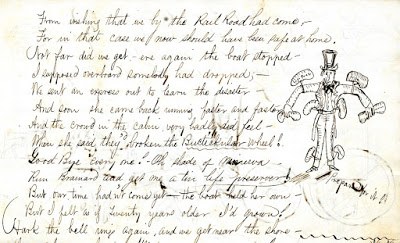 From wishing that we by the Rail Road had come,
For in that case we now should have been safe at home.
Not far did we get - ere again the boat stopped -
I supposed overboard somebody had dropped;-
We sent an express out to learn the disaster -
And soon she came back running faster and faster,
And the crowd in the cabin, very badly did feel -
When she said they'd broken the Bucket wheel!
Good Bye Every one! - Oh shade of Minerva
Run Brainard and get me a tin life preserver!
But our time had'nt come yet - the boat held her own
But I felt as if twenty years older I'd grown!
Hark the bell rings again, and we get near the shore -
Prepared for it